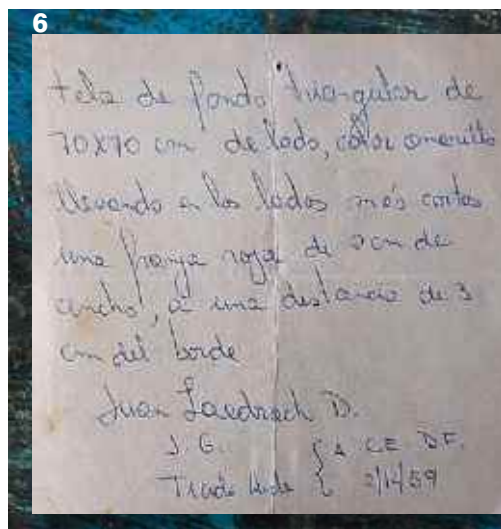 6
tela de fondo triangular de
70X70 cm de lado, color amarillo
llevando en los lados más cortos
una franja roja de 2 cm de
ancho, a una distancia de 3
cm del borde
Juan D.
J. G. A CE DF.